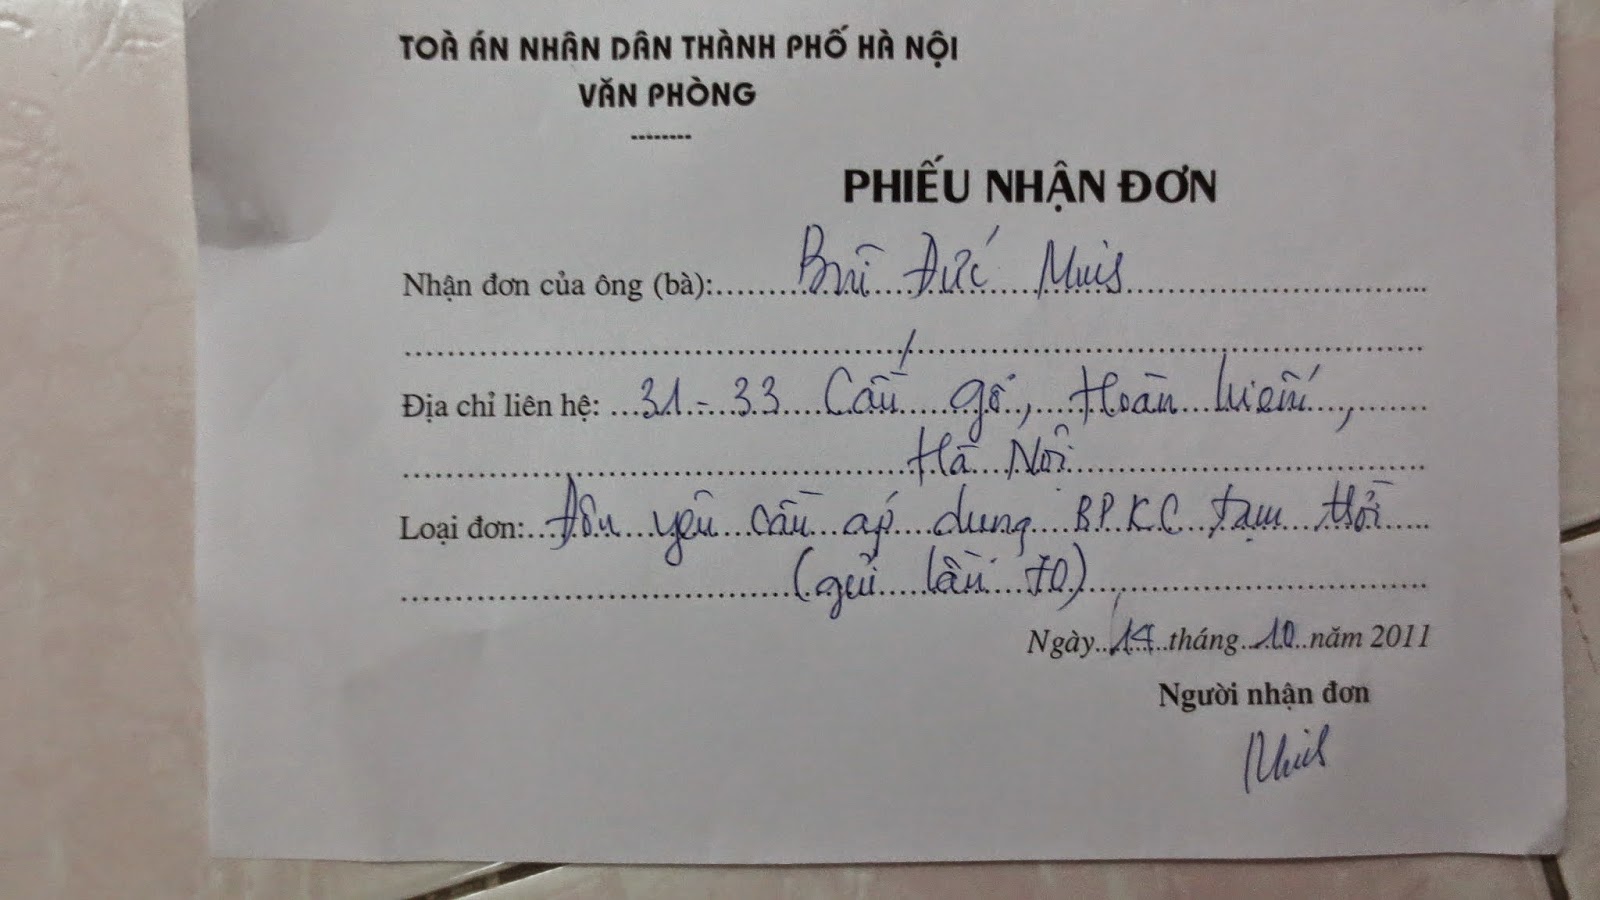 TOÀ ÁN NHÂN DÂN THÀNH PHỐ HÀ NỘI
VĂN PHÒNG
--------
PHIẾU NHẬN ĐƠN
Nhận đơn của ông (bà): Bùi Đức
Địa chỉ liên hệ: 31-33 Cầu gỗ, Hoàn kiếm,
Hà Nội
Loại đơn: Đơn yêu cầu áp dụng BPKC tạm thời
(gửi lần 70)
Ngày 14 tháng 10 năm 2011
Người nhận đơn